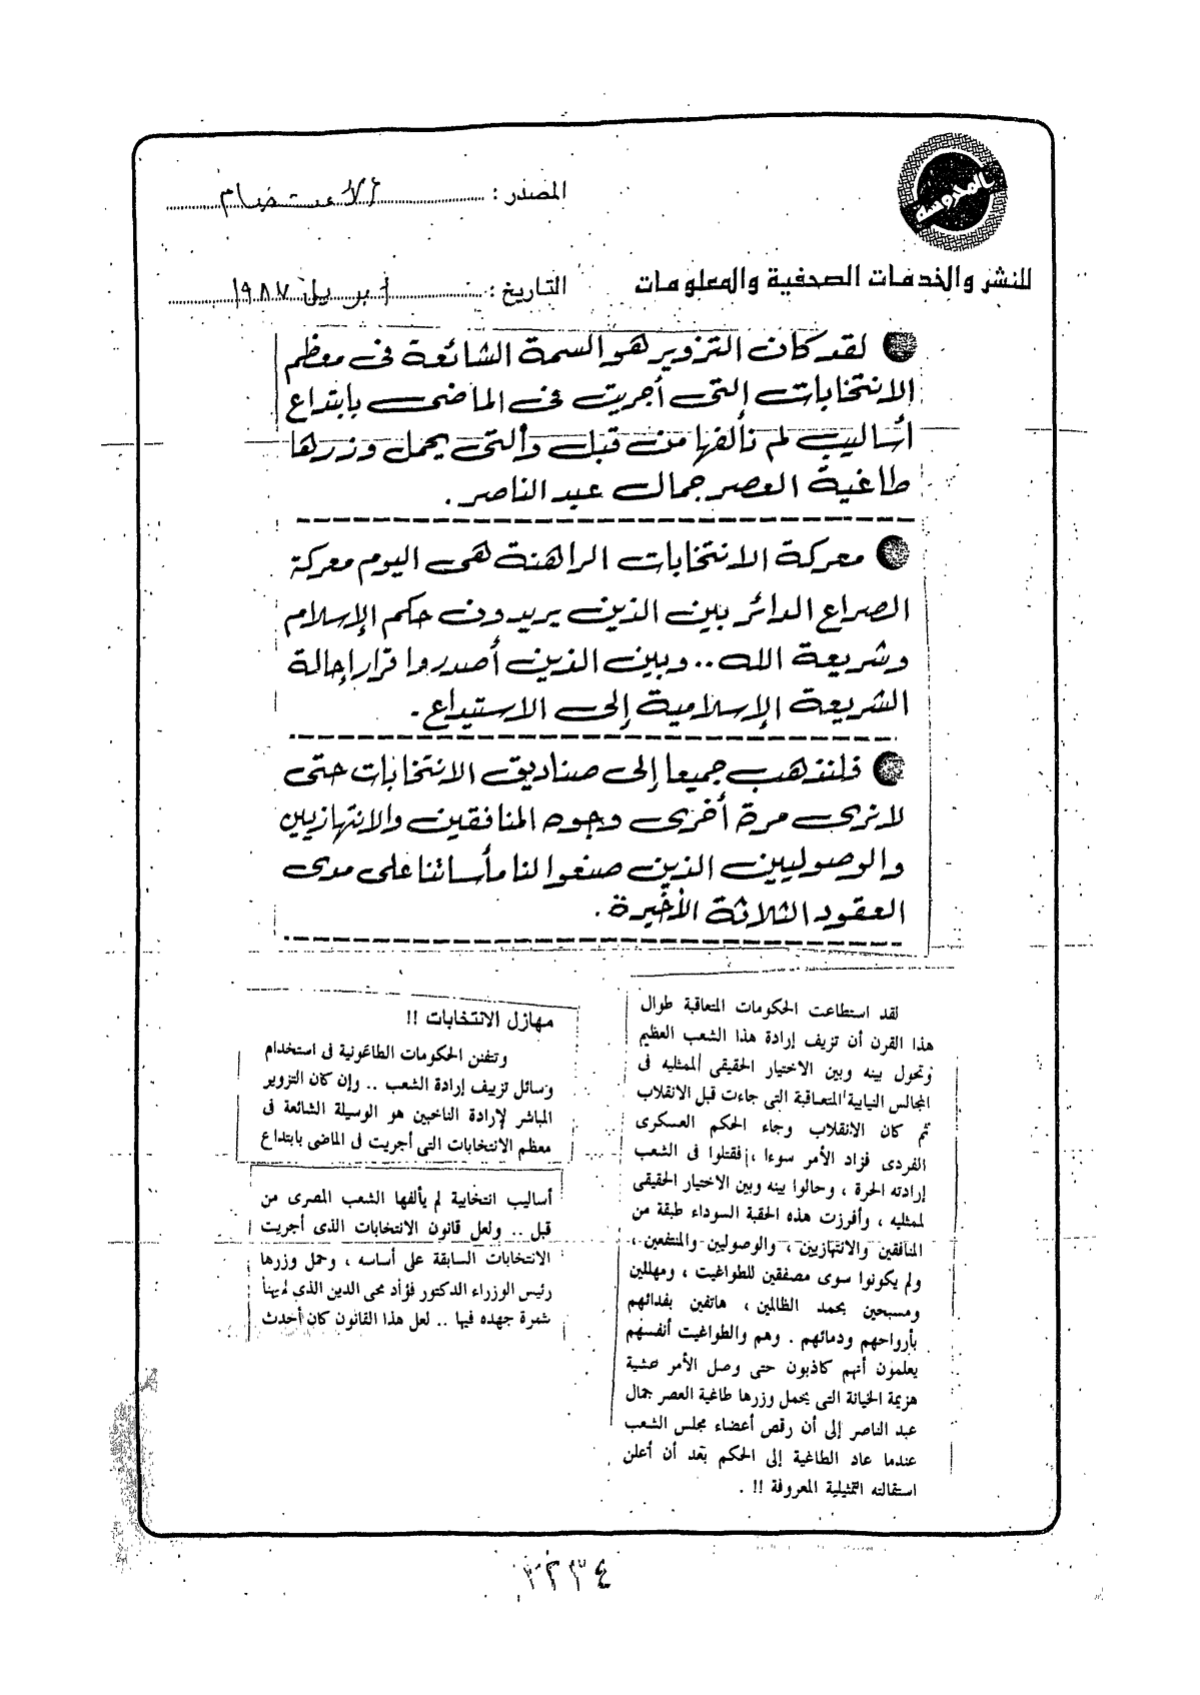 بالمحروسة
للنشر والخدمات الصحفية والمعلومات
المصدر : الاعتصام
التاريخ : ابريل ١٩٨٧
لقد كان التزوير هو السمة الشائعة فى معظم
الانتخابات التى أجريت فى الماضى بابتداع
أساليب لم نألفها من قبل والتى يحمل وزرها
طاغية العصر جمال عبد الناصر .
معركة الانتخابات الراهنة هى اليوم معركة
الصراع الدائر بين الذين يريدون حكم الإسلام
وشريعة الله .. وبين الذين أصدروا قرار إحالة
الشريعة الإسلامية إلى الاستيداع .
فلنذهب جميعا إلى صناديق الانتخابات حتى
لا نرى مرة أخرى وجوه المنافقين والانتهازيين
والوصوليين الذين صنعوا لنا مأساتنا على مدى
العقود الثلاثة الأخيرة .
لقد استطاعت الحكومات المتعاقبة طوال
هذا القرن أن تزيف إرادة هذا الشعب العظيم
وتحول بينه وبين الاختيار الحقيقى لممثليه فى
المجالس النيابية المتعاقبة التى جاءت قبل الانقلاب
ثم كان الانقلاب وجاء الحكم العسكرى
الفردى فزاد الأمر سوءا ، فقتلوا فى الشعب
إرادته الحرة ، وحالوا بينه وبين الاختيار الحقيقى
لممثليه ، وأفرزت هذه الحقبة السوداء طبقة من
المنافقين والانتهازيين ، والوصوليين والمنتفعين ،
ولم يكونوا سوى مصفقين للطواغيت ، ومهللين
ومسبحين بحمد الظالمين ، هاتفين بفدائهم
بأرواحهم ودمائهم . وهم والطواغيت أنفسهم
يعلمون أنهم كاذبون حتى وصل الأمر عشية
هزيمة الخيانة التى يحمل وزرها طاغية العصر جمال
عبد الناصر إلى أن رقص أعضاء مجلس الشعب
عندما عاد الطاغية إلى الحكم بعد أن أعلن
استقالته التمثيلية المعروفة !! .
مهازل الانتخابات !!
وتتفنن الحكومات الطاغوتية فى استخدام
وسائل تزييف إرادة الشعب .. وإن كان التزوير
المباشر لإرادة الناخبين هو الوسيلة الشائعة فى
معظم الانتخابات التى أجريت فى الماضى بابتداع
أساليب انتخابية لم يألفها الشعب المصرى من
قبل .. ولعل قانون الانتخابات الذى أجريت
الانتخابات السابقة على أساسه ، وحمل وزرها
رئيس الوزراء الدكتور فؤاد محى الدين الذى لم يهنأ
ثمرة جهده فيها .. لعل هذا القانون كان أحدث
٣٢٣٤